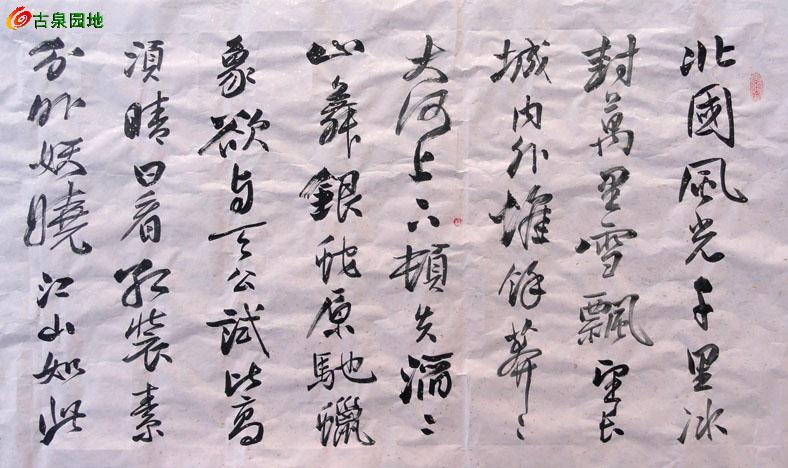 古泉园地
北國風光千里冰
封萬里雪飄望长
城内外惟餘莽〻
大河上下頓失滔〻
山舞銀蛇原馳蠟
象欲与天公試比高
須晴日看紅裝素
分外妖曉江山如此